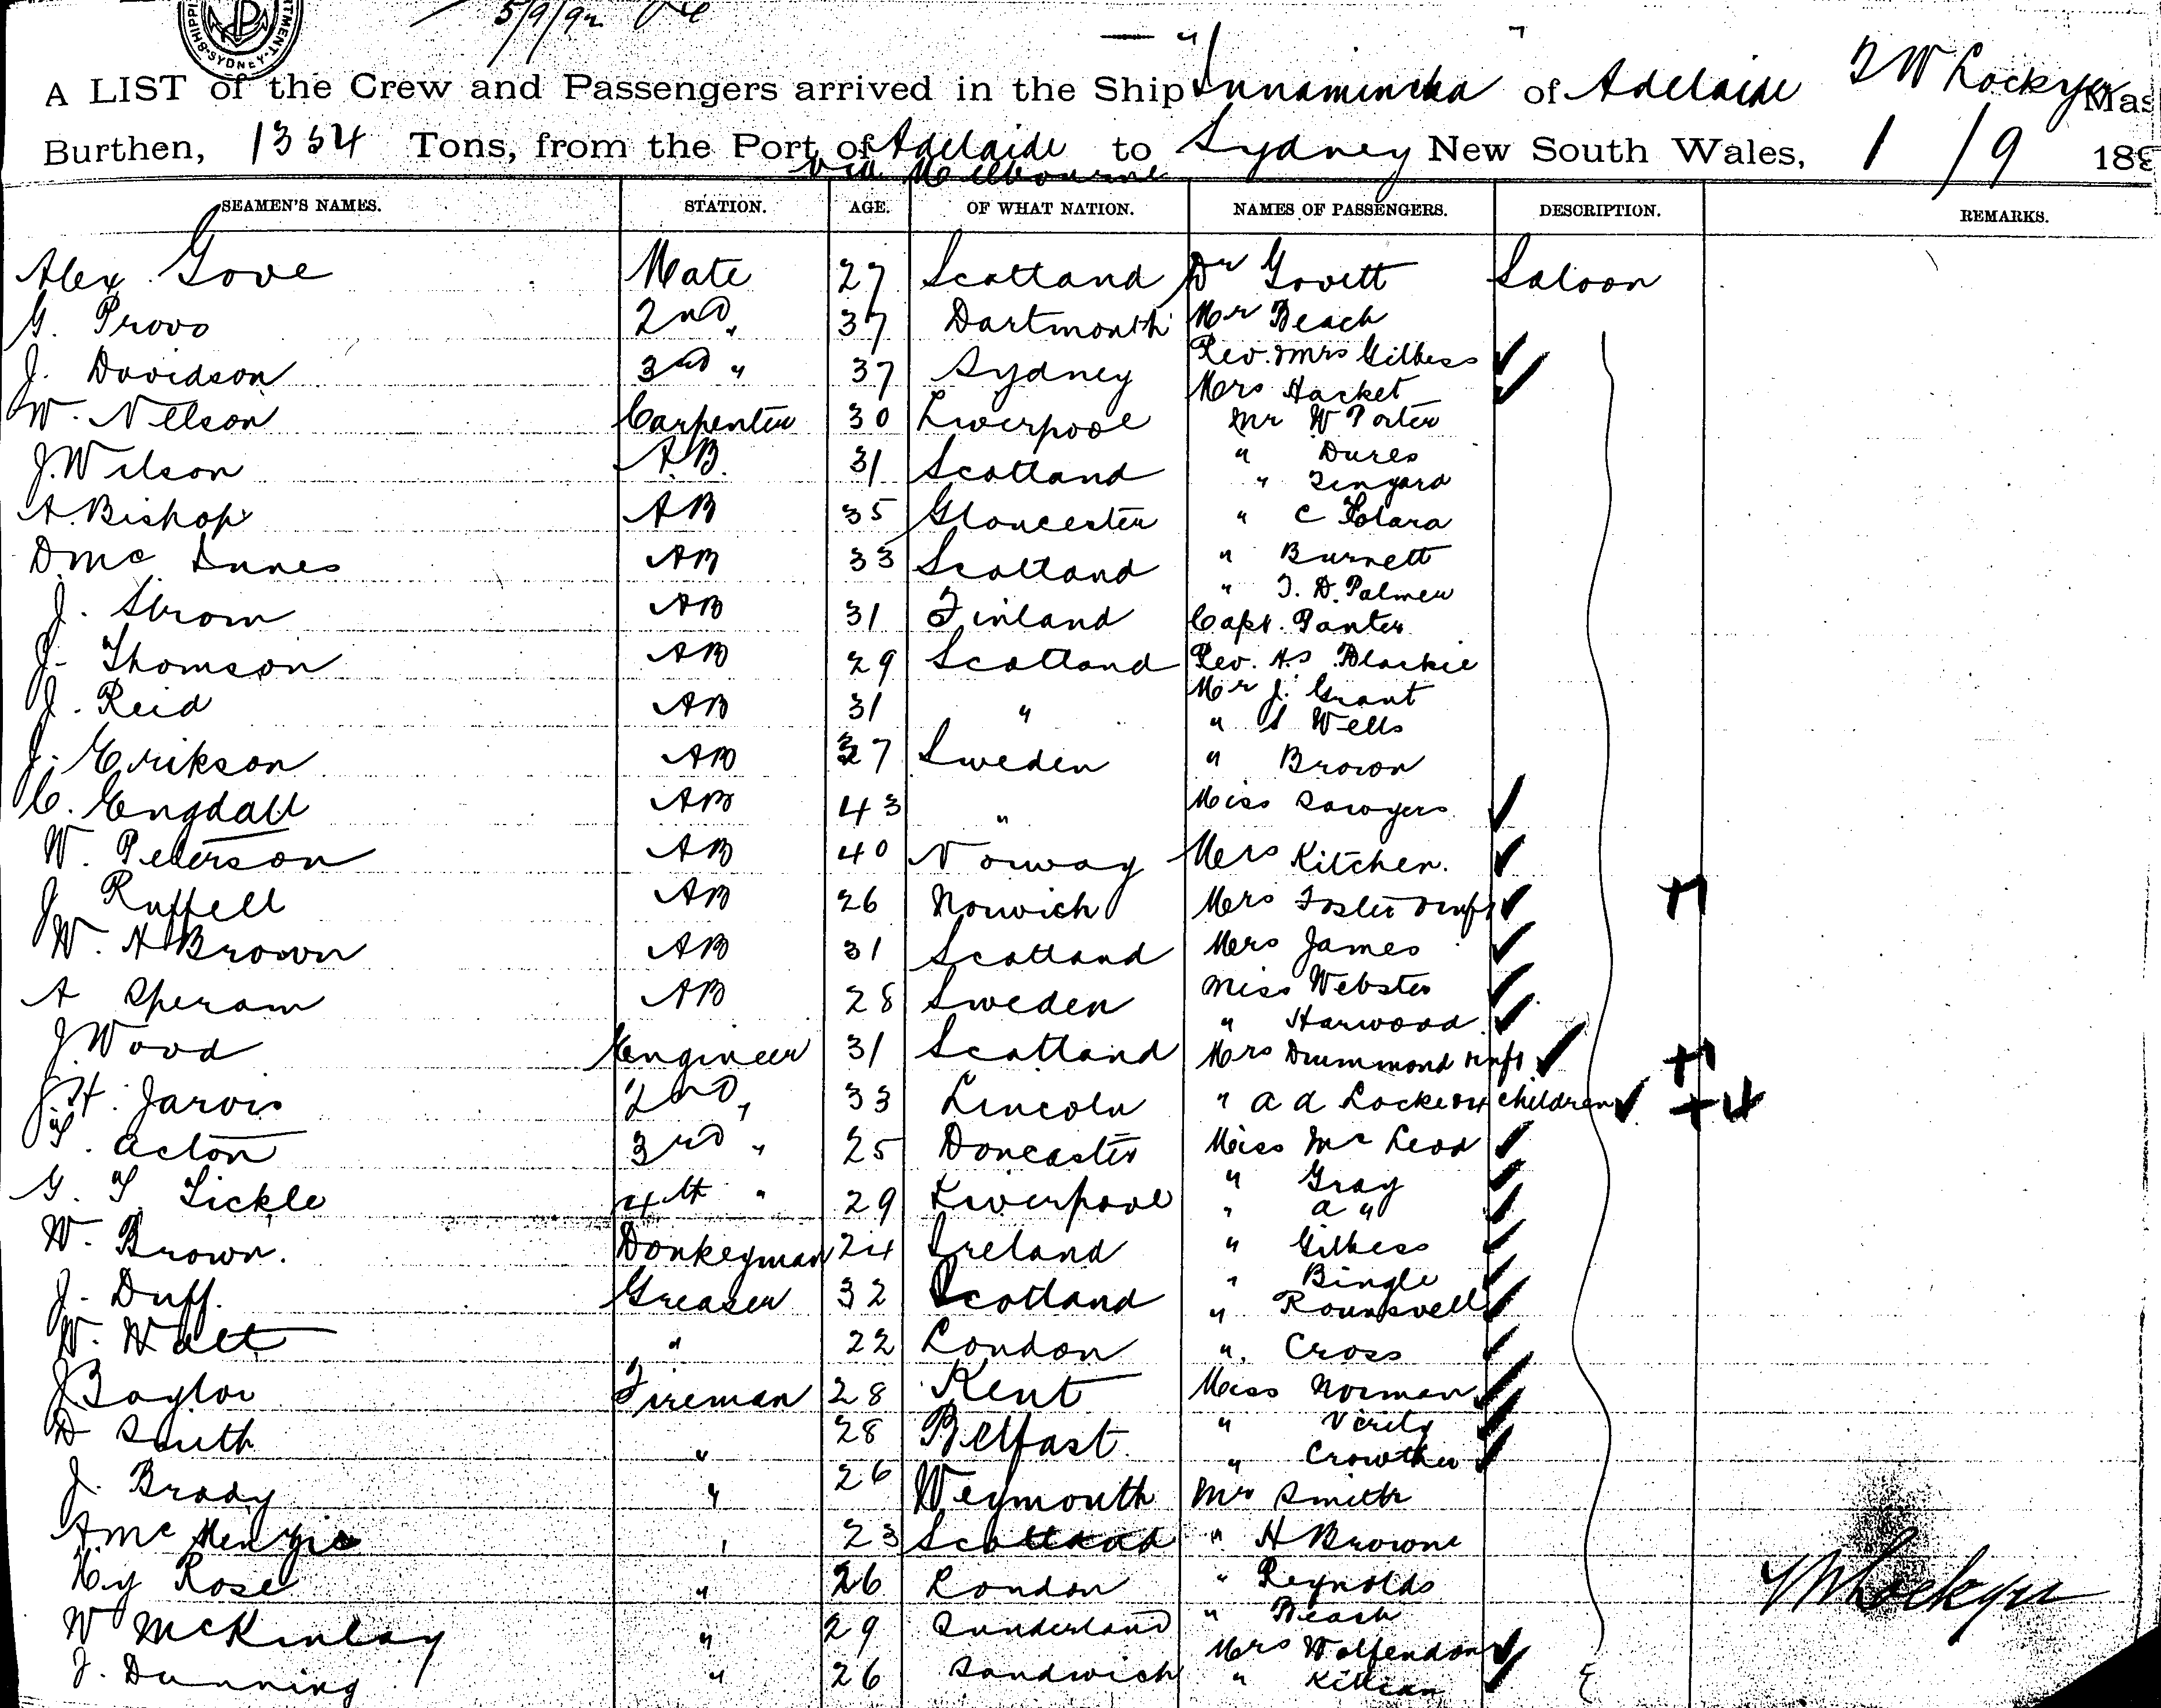 SHIPPI
RTMENT
SYDNEY
5/9/92
A LIST of the Crew and Passengers arrived in the Ship Innamincka of Adelaide T W Lockyer Mas
Burthen, 1354 Tons, from the Port of Adelaide to Sydney New South Wales, 1/9 189
via Melbourne
SEAMEN'S NAMES. STATION. AGE. OF WHAT NATION. NAMES OF PASSENGERS. DESCRIPTION. REMARKS.
Alex Gove Mate 27 Scotland Dr Govett Saloon
G. Provo 2nd " 37 Dartmouth Mr Beach
J. Davidson 3rd " 37 Sydney Rev. & Mrs Gilbess
Mrs Hacket
W. Nelson Carpenter 30 Liverpool Mr W Porter
J. Wilson A.B. 31 Scotland " Dures
" Tingara
A. Bishop AB 35 Gloucester " C
D. Mc Innes AB 33 Scotland " Burnett
" T. D. Palmer
J. Strom AB 31 Finland Capt. Panter
J. Thomson AB 29 Scotland Rev. A.S Blackie
J. Reid AB 31 " Mr J. Grant
" S Wells
J. Erikson AB 27 Sweden " Brown
C. Engdall AB 43 " Miss Sawyers
W. Peterson AB 40 Norway Mrs Kitchen.
J Ruffell AB 26 Norwich Mrs Foster & inft +1
W. H Brown AB 31 Scotland Mrs James
A Speram AB 28 Sweden Miss Webster
" Harwood
J. Wood Engineer 31 Scotland Mrs Drummond & inft +1
J. H. Jarvis 2nd " 33 Lincoln " A A Locke & 4 children +4
T. Acton 3rd " 25 Doncaster Miss Mc Leod
" Gray
G. T. Tickle 4th " 29 Liverpool " A "
W. Brown. Donkeyman 24 Ireland " Gilbess
" Bingle
J. Duff. Greaser 32 Scotland " Rounsvell
W. Watt " 22 London " Cross
J Baylor Fireman 28 Kent Miss Norman
D Smith " 28 Belfast. " Verity
" Crowther
J. Brady " 26 Weymouth Mr Smith
A Mc Menzie " 23 Scotland " H Browne
Hy Rose " 26 London " Reynolds
W McKinlay " 29 Sunderland " Beach
Mrs Wolfendon
J. Dunning " 26 Sandwich " Killian
T W Lockyer